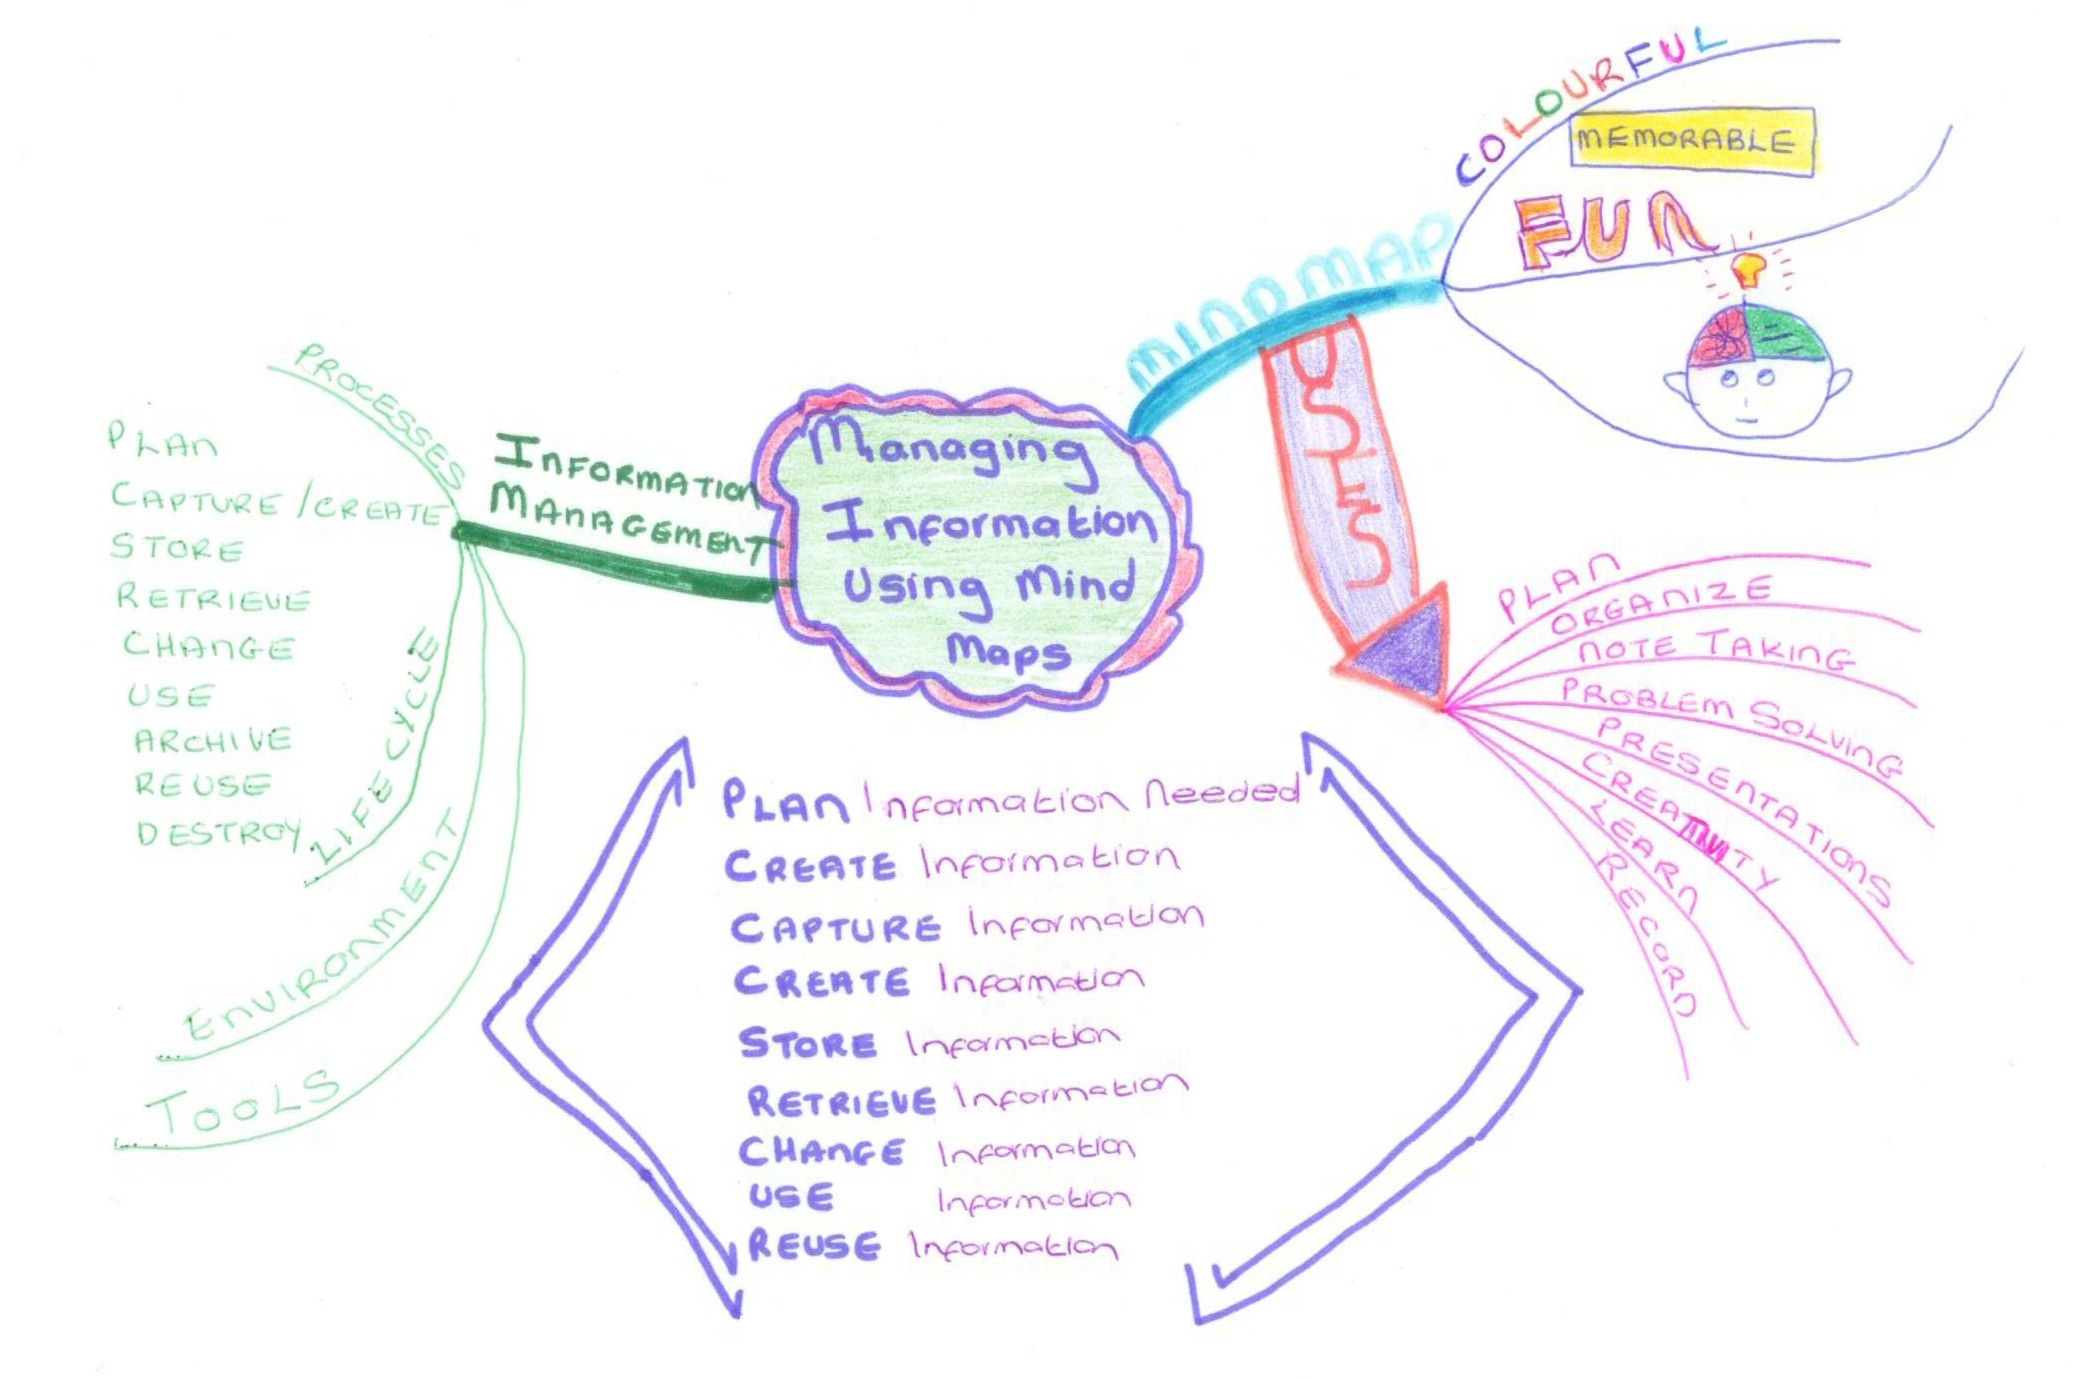 Managing
Information
Using Mind
Maps
INFORMATION
MANAGEMENT
PROCESSES
PLAN
CAPTURE / CREATE
STORE
RETRIEVE
CHANGE
USE
ARCHIVE
REUSE
DESTROY
LIFE CYCLE
ENVIRONMENT
TOOLS
MIND MAP
COLOURFUL
MEMORABLE
FUN
USING
PLAN
ORGANIZE
NOTE TAKING
PROBLEM SOLVING
PRESENTATIONS
CREATIVITY
LEARN
RECORD
PLAN Information Needed
CREATE Information
CAPTURE Information
CREATE Information
STORE Information
RETRIEVE Information
CHANGE Information
USE Information
REUSE Information